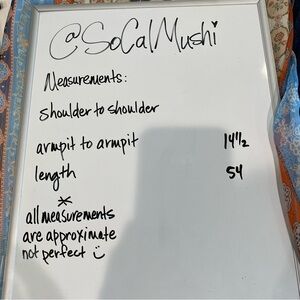 @SoCalMushi
Measurements:
shoulder to shoulder
armpit to armpit 14½
length 54
*
all measurements
are approximate
not perfect :)